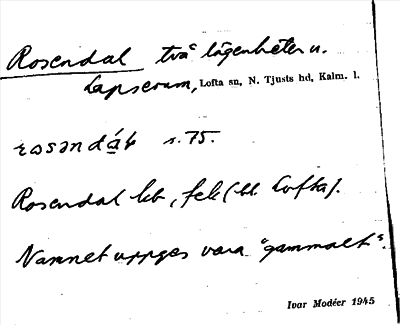 Rosendal två lägenheter u.
Lapserum, Lofta sn, N. Tjusts hd, Kalm. l.
rosəndáḷ s. 75.
Rosendal lht, fek (bl. Lofta).
Namnet uppges vara "gammalt".
Ivar Modéer 1945